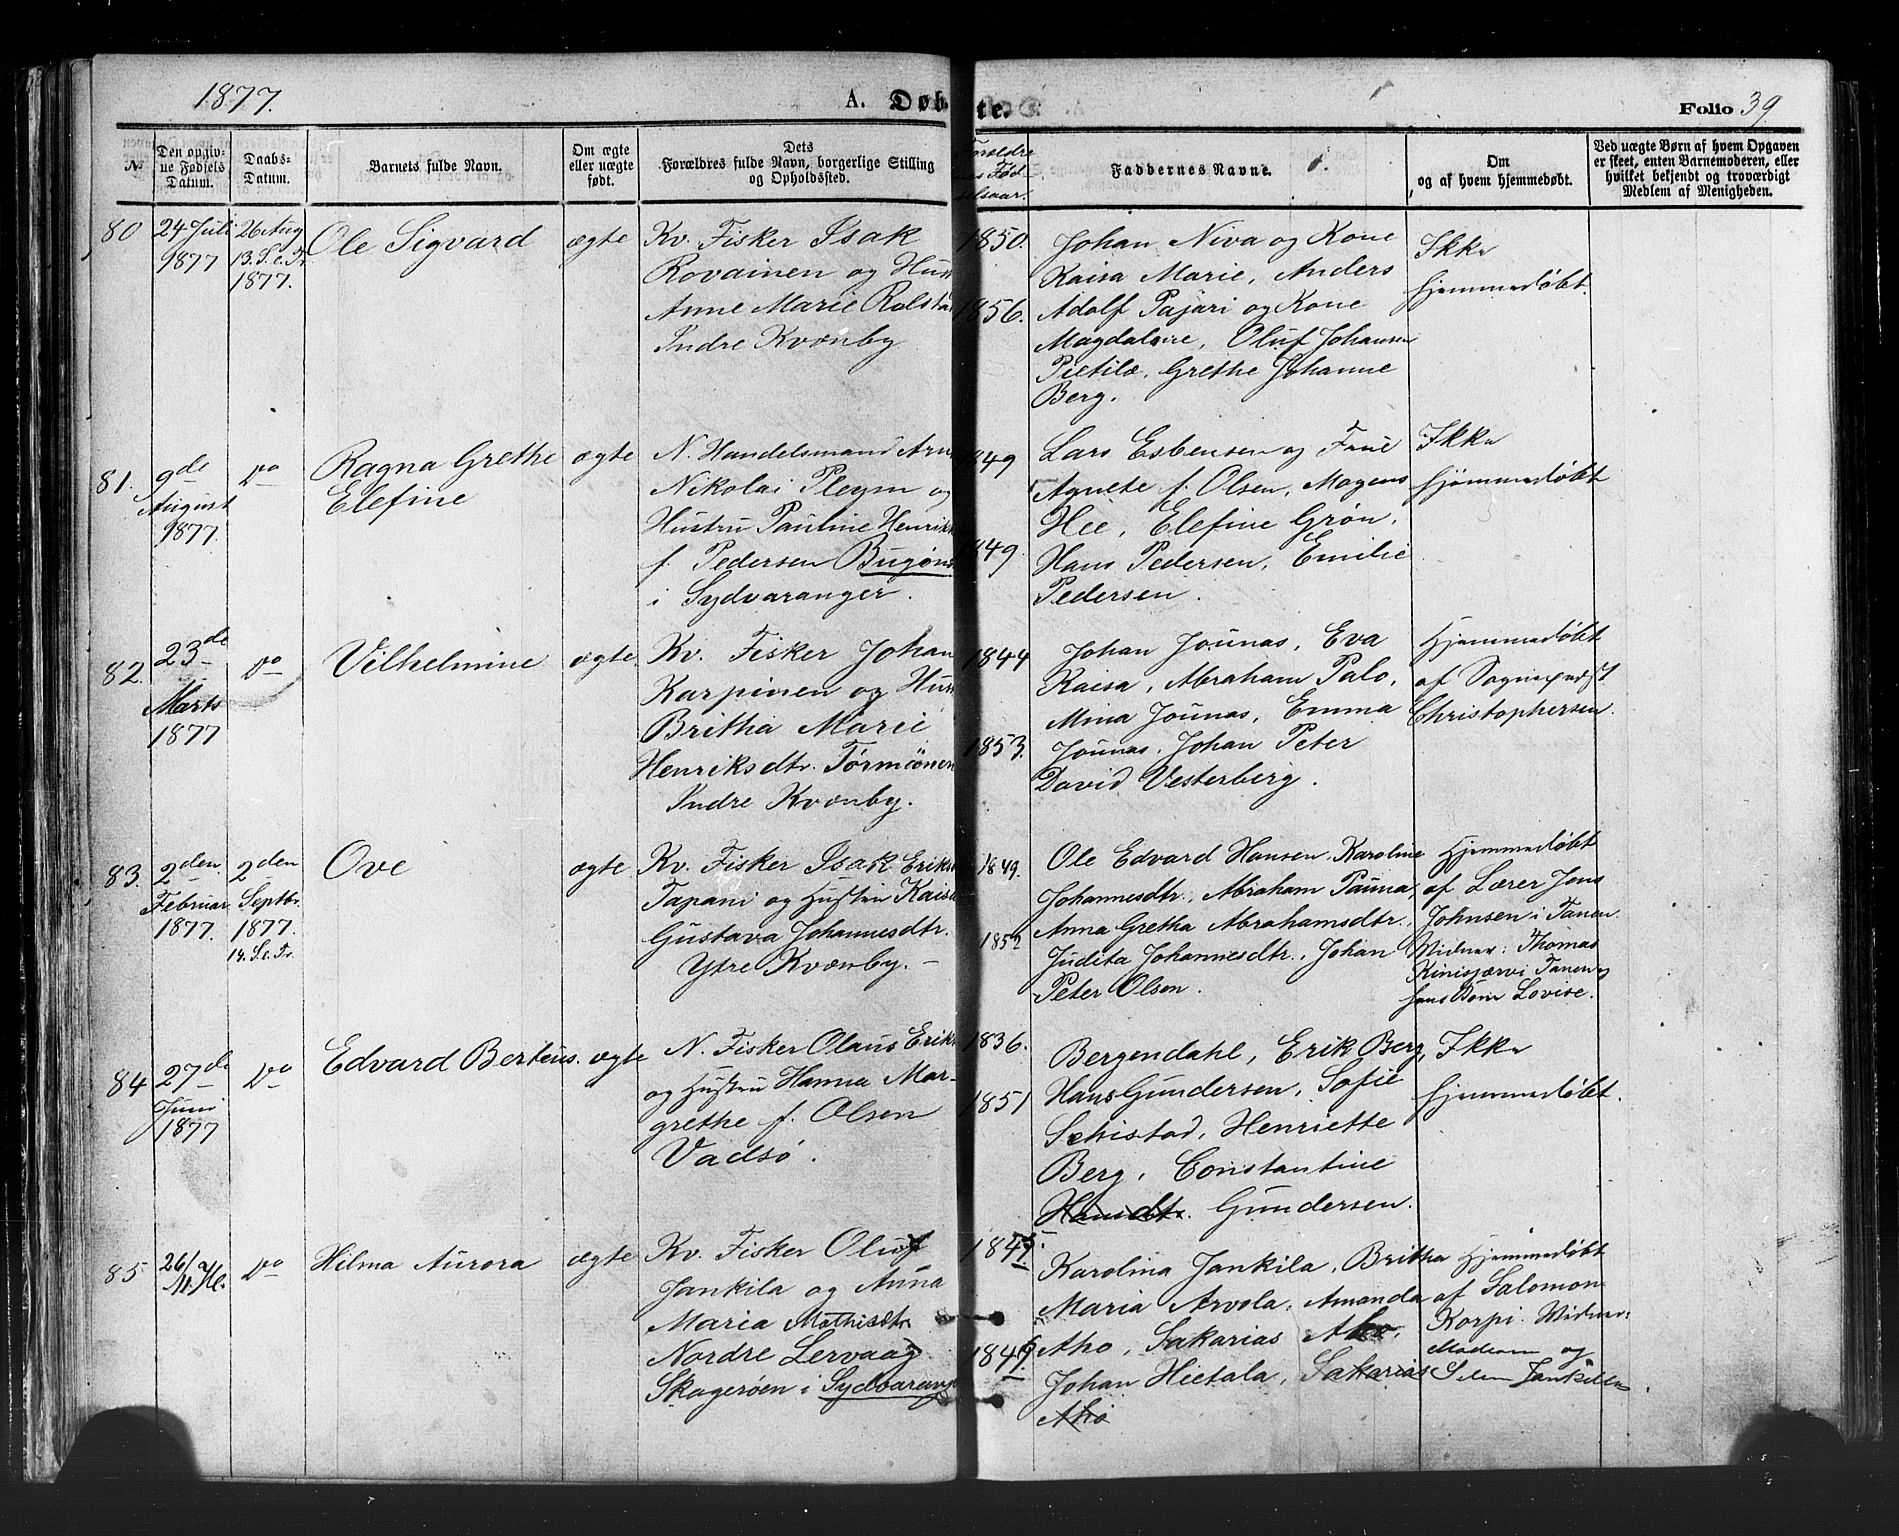 1877.
A. Døbte.
Folio 39
№
Den opgivne Fødsels Datum.
Daabs-Datum.
Barnets fulde Navn.
Om ægte eller uægte født.
Dets Forældres fulde Navn, borgerlige Stilling og Opholdssted.
Faddernes Navne.
Om og af hvem hjemmedøbt.
Ved uægte Børn af hvem Opgaven er skeet, enten Barnemoderen, eller hvilket bekjendt og troværdigt Medlem af Menigheden.
80
24 Juli
1877
26 Aug
13. S. e. Tr.
1877.
Ole Sigvard
ægte
Kv. Fisker Isak
Rovainen og Hust
Anne Marie Rolsta
Indre Kvænby
1850.
1856.
Johan Niva og Kone
Kaisa Marie, Anders
Adolf Pajari og Kone
Magdalene, Oluf Johansen
Pietilæ, Grethe Johanne
Berg.
Ikke
hjemmedøbt.
81.
9de
August
1877.
Do
Ragna Grethe
Elefine
ægte
N. Handelsmand Arn
Nikolai Pleym og
Hustru Pauline Henrikt
f. Pedersen Bugøns
i Sydvaranger.
1849
1849.
Lars Esbensen og Frue
Agnete f. Olsen, Mogens
Hie, Elefine Grøn,
Hans Pedersen, Emilie
Pedersen.
Ikke
hjemmedøbt
82.
23de
Marts
1877
Do
Vilhelmine
ægte
Kv. Fisker Johan
Karpinen og Hust
Britha Marie
Henriksdtr. Tørmönen
Indre Kvænby.
1844
1853.
Johan Jounas, Eva
Kaisa, Abraham Palo,
Mina Jounas, Emma
Jounas, Johan Peter
David Vesterberg.
Hjemmedøbt
af Sognepræst
Christophersen.
83.
2den
Februar
1877.
2den
Septbr.
1877.
14. S. e. Tr.
Ove
ægte
Kv. Fisker Isak Eriks
Tapani og Hustru Kaisa
Gustava Johannesdtr.
Ytre Kvænby. -
1849.
1852
Ole Edvard Hansen, Karoline
Johannesdtr., Abraham Pauna,
Anna Gretha Abrahamsdtr.,
Judita Johannesdtr., Johan
Peter Olsen.
Hjemmedøbt
af Lærer Jons
Johnsen i Tanen.
Vidner: Thomas
Kinisjærvi Tanen og
hans Børn Lovise.
84
27de
Juni
1877
Do
Edvard Berteus.
ægte
N. Fisker Olaus Erik
og Hustru Hanna Mar-
grethe f. Olsen
Vadsø.
1836.
1851
Bergendahl, Erik Berg,
Hans Gundersen, Sofie
Schistad, Henriette
Berg, Constantine
Hansdtr. Gundersen.
Ikke
hjemmedøbt.
85
26/
Do
Hilma Aurora
ægte
Kv. Fisker Oluf
Jankila og Anna
Maria Mathisdtr
Nordre Lervaag
Skagerøen i Sydvarang
Karolina Jankila, Britha
Maria Arvola, Amanda
Aho, Sakarias Aho,
Johan Hietala, Sakarias
Aho
Hjemmedøbt
af Salomon
Korpi. Vidner:
Moderen og
Selma Jankila.